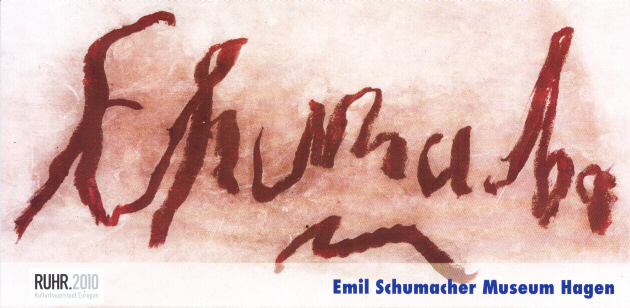 Schumacher
RUHR.2010
Kulturhauptstadt Europas
Emil Schumacher Museum Hagen